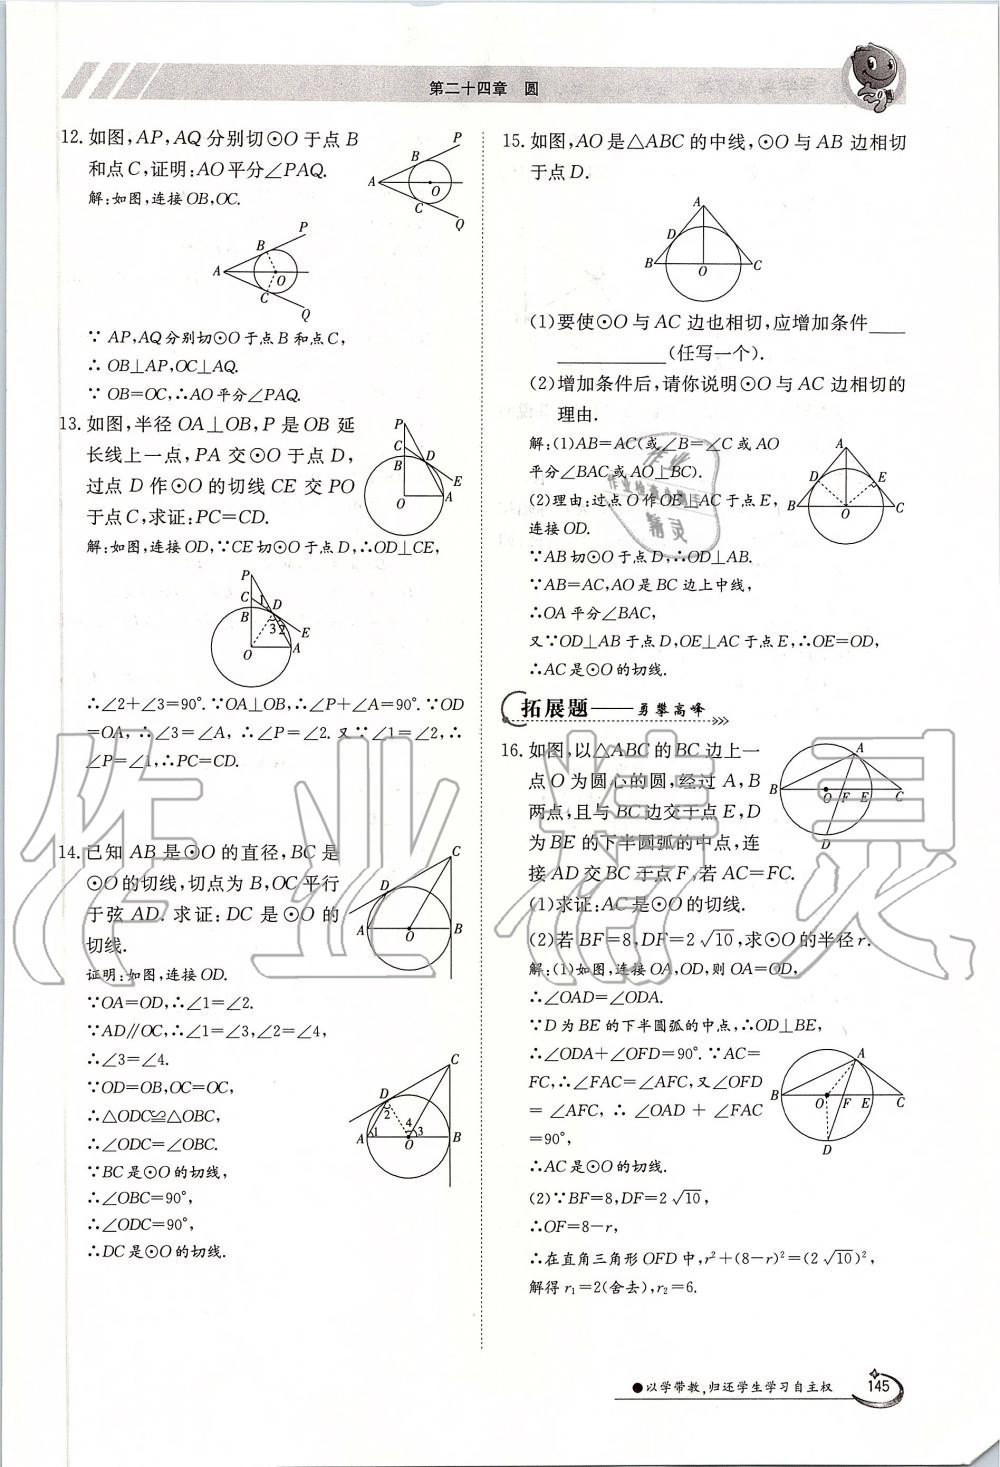 第二十四章 圆
12. 如图,AP,AQ 分别切⊙O 于点 B
和点 C,证明:AO 平分∠PAQ.
解:如图,连接 OB,OC.
P
B
A
O
C
Q
P
B
A
O
C
Q
∵ AP,AQ 分别切⊙O 于点 B 和点 C,
∴ OB⊥AP,OC⊥AQ.
∵ OB=OC,∴AO 平分∠PAQ.
13. 如图,半径 OA⊥OB,P 是 OB 延
长线上一点,PA 交⊙O 于点 D,
过点 D 作⊙O 的切线 CE 交 PO
于点 C,求证:PC=CD.
P
C
D
B
E
O
A
解:如图,连接 OD,∵CE 切⊙O 于点 D,∴OD⊥CE,
P
C
1
D
B
3
2
E
O
A
∴∠2+∠3=90°.∵OA⊥OB,∴∠P+∠A=90°.∵OD
=OA, ∴∠3=∠A, ∴∠P=∠2. 又∵∠1=∠2,∴
∠P=∠1,∴PC=CD.
14. 已知 AB 是⊙O 的直径,BC 是
⊙O 的切线,切点为 B,OC 平行
于弦 AD. 求证:DC 是⊙O 的
切线.
C
D
A
O
B
证明:如图,连接 OD.
∵OA=OD,∴∠1=∠2.
∵AD∥OC,∴∠1=∠3,∠2=∠4,
∴∠3=∠4.
∵OD=OB,OC=OC,
∴△ODC≌△OBC,
∴∠ODC=∠OBC.
∵BC 是⊙O 的切线,
∴∠OBC=90°,
∴∠ODC=90°,
∴DC 是⊙O 的切线.
C
D
2
4
A
1
3
O
B
15. 如图,AO 是△ABC 的中线,⊙O 与 AB 边相切
于点 D.
A
D
B
O
C
(1)要使⊙O 与 AC 边也相切,应增加条件____
____________(任写一个).
(2)增加条件后,请你说明⊙O 与 AC 边相切的
理由.
解:(1)AB=AC(或∠B=∠C 或 AO
平分∠BAC 或 AO⊥BC).
(2)理由:过点 O 作 OE⊥AC 于点 E,
连接 OD.
A
D
E
B
O
C
∵AB 切⊙O 于点 D,∴OD⊥AB.
∵AB=AC,AO 是 BC 边上中线,
∴OA 平分∠BAC,
又∵OD⊥AB 于点 D,OE⊥AC 于点 E,∴OE=OD,
∴AC 是⊙O 的切线.
拓展题——勇攀高峰
16. 如图,以△ABC 的 BC 边上一
点 O 为圆心的圆,经过 A,B
两点,且与 BC 边交于点 E,D
为 BE 的下半圆弧的中点,连
接 AD 交 BC 于点 F,若 AC=FC.
A
B
O
F
E
C
D
(1)求证:AC 是⊙O 的切线.
(2)若 BF=8,DF=2√10,求⊙O 的半径 r.
解:(1)如图,连接 OA,OD,则 OA=OD,
∴∠OAD=∠ODA.
∵D 为 BE 的下半圆弧的中点,∴OD⊥BE,
∴∠ODA+∠OFD=90°.∵AC=
FC,∴∠FAC=∠AFC,又∠OFD
= ∠AFC, ∴ ∠OAD + ∠FAC
=90°,
∴AC 是⊙O 的切线.
A
B
O
F
E
C
D
(2)∵BF=8,DF=2√10,
∴OF=8-r,
∴在直角三角形 OFD 中,r²+(8-r)²=(2√10)²,
解得 r₁=2(舍去),r₂=6.
●以学带教,归还学生学习自主权
145
作业精灵